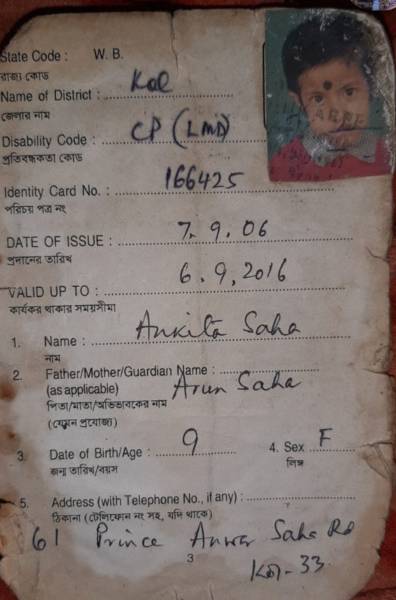 State Code : W. B.
রাজ্য কোড
Name of District : Kol
জেলার নাম
Disability Code : CP (LMD)
প্রতিবন্ধকতা কোড
Identity Card No. : 166425
পরিচয় পত্র নং
DATE OF ISSUE : 7. 9. 06
প্রদানের তারিখ
VALID UP TO : 6. 9, 2016
কার্যকর থাকার সময়সীমা
1. Name : Ankita Saha
নাম
2. Father/Mother/Guardian Name :
(as applicable) Arun Saha
পিতা/মাতা/অভিভাবকের নাম
(যেখানে প্রযোজ্য)
3. Date of Birth/Age : 9 4. Sex F
জন্ম তারিখ/বয়স লিঙ্গ
5. Address (with Telephone No., if any) :
ঠিকানা (টেলিফোন নং সহ, যদি থাকে)
61 Prince Anwar Saha Rd
3
Kol-33